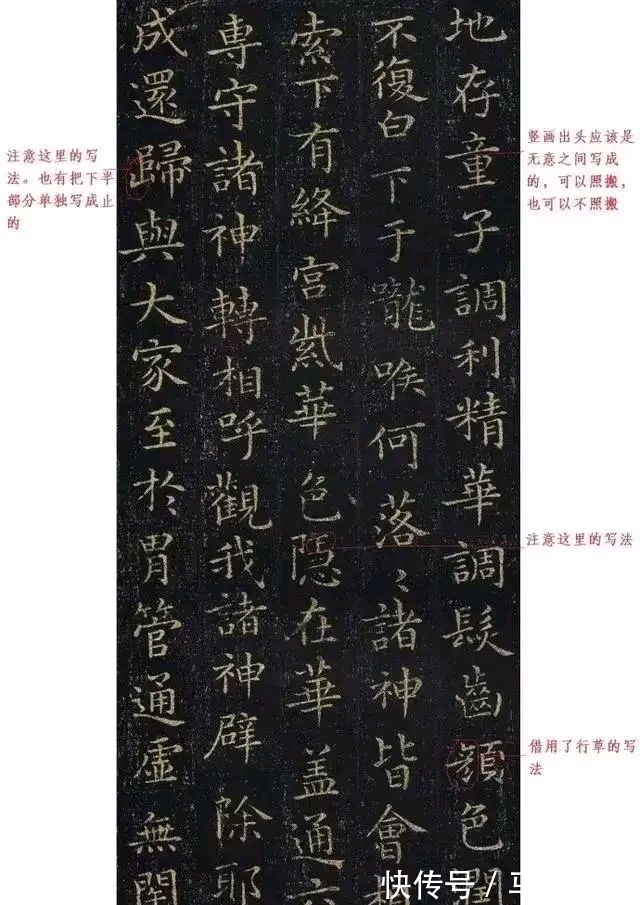 地存童子調利精華調髮齒顏色潤
不復白下于嚨喉何落々諸神皆會相
索下有絳宮紫華色隱在華蓋通六
專守諸神轉相呼觀我諸神辟除耶
成還歸與大家至於胃管通虛無閉
竖画出头应该是
无意之间写成
的，可以照搬，
也可以不照搬
注意这里的写法
借用了行草的写
法
注意这里的写
法。也有把下半
部分单独写成止
的
快传号/